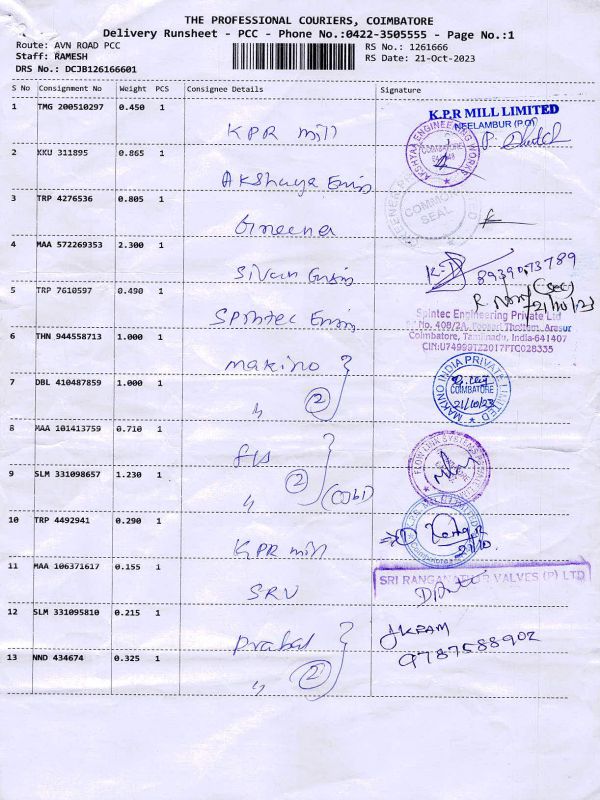 THE PROFESSIONAL COURIERS, COIMBATORE
Delivery Runsheet - PCC - Phone No.:0422-3505555 - Page No.:1
Route: AVN ROAD PCC RS No.: 1261666
Staff: RAMESH RS Date: 21-Oct-2023
DRS No.: DCJB126166601
S No Consignment No Weight PCS Consignee Details Signature
1 TMG 200510297 0.450 1 KPR mill K.P.R MILL LIMITED
NEELAMBUR (P.O)
AKSHYAA ENGINEERING WORKS
COIMBATORE
2 KKU 311895 0.865 1 Akshaya Engg
3 TRP 4276536 0.805 1 Greenea
COMMON SEAL
4 MAA 572269353 2.300 1 Sivam Engg 8939073789
5 TRP 7610597 0.490 1 Spintec Engg 21/10/23
Spintec Engineering Private Ltd
No. 408/2A, Thottam, Arasur
Coimbatore, Tamilnadu, India-641407
CIN:U74999TZ2017FTC028335
6 THN 944558713 1.000 1 makino
7 DBL 410487859 1.000 1 " 2
MAKINO INDIA PRIVATE LIMITED
COIMBATORE
21/10/23
8 MAA 101413759 0.710 1 FLS
FLOW LINK SYSTEMS
9 SLM 331098657 1.230 1 " 2
10 TRP 4492941 0.290 1 KPR mill
21/10
11 MAA 106371617 0.155 1 SRV
SRI RANGANATHAR VALVES (P) LTD
12 SLM 331095810 0.215 1 Prabal
9787588902
13 NND 434674 0.325 1 " 2